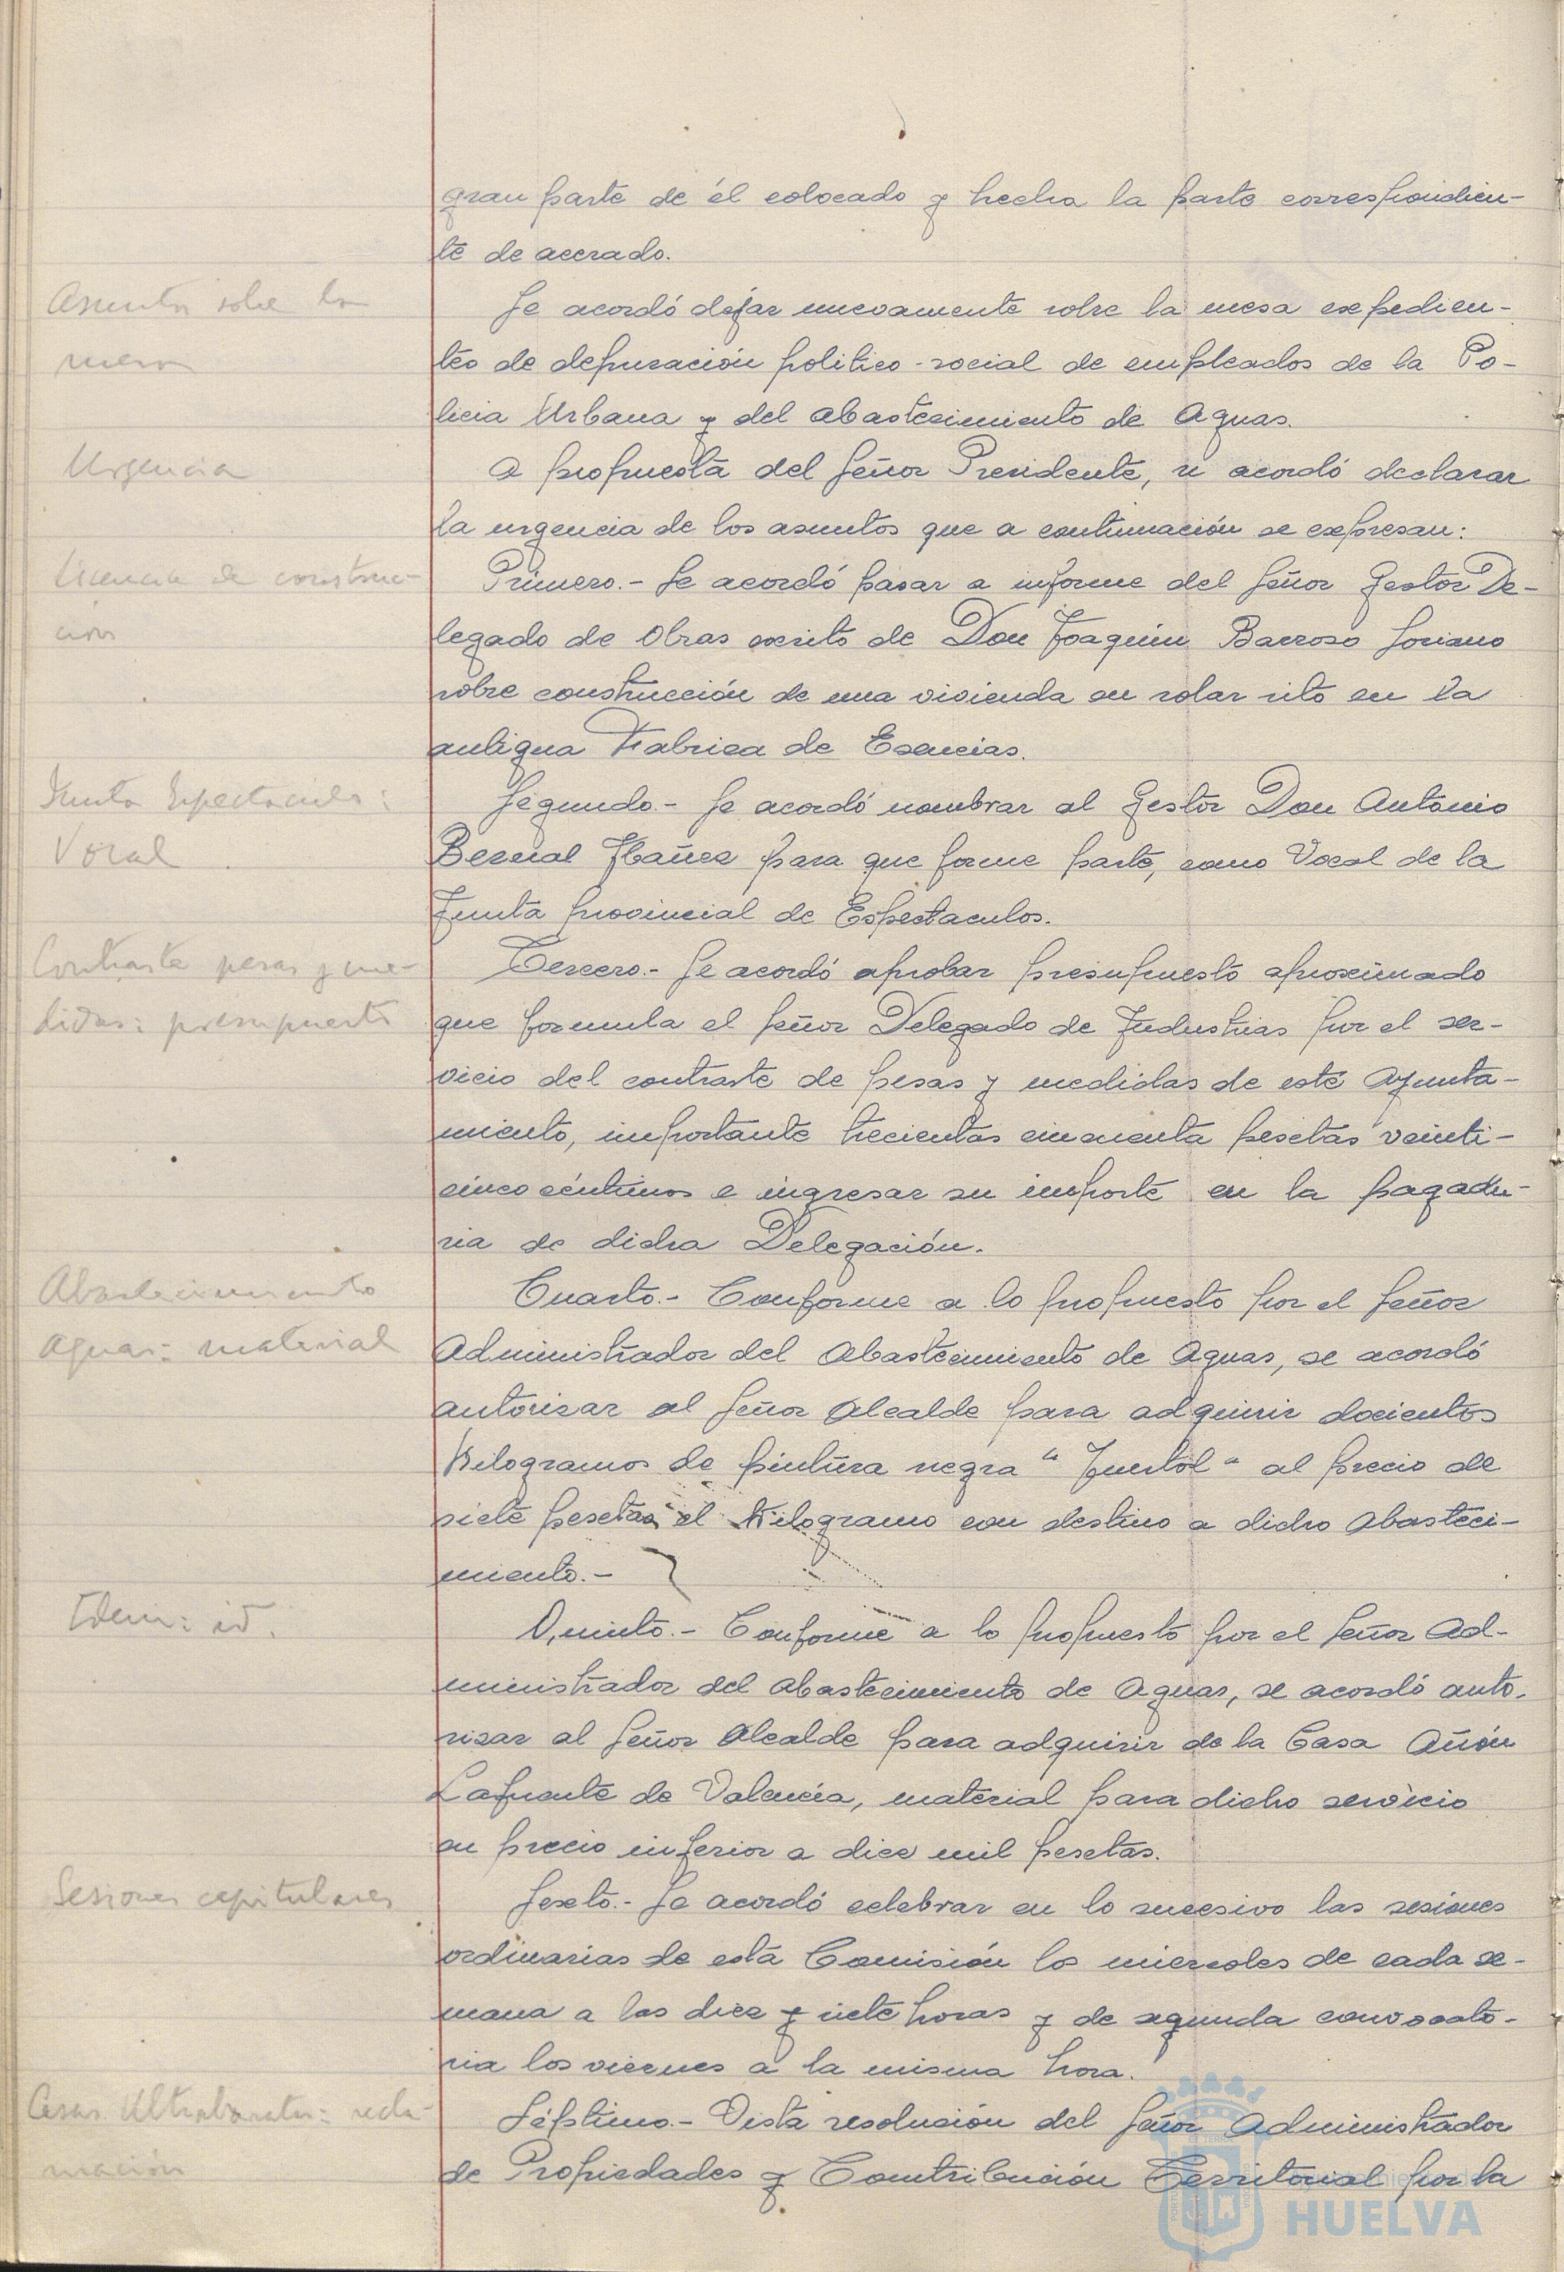 gran parte de él colocado y hecha la parte correspondien-
te de acerado.
Asuntos sobre la
mesa
Se acordó dejar nuevamente sobre la mesa expedien-
tes de depuración politico-social de empleados de la Po-
licia Urbana y del abastecimiento de Aguas.
Urgencia
A propuesta del Señor Presidente, se acordó declarar
la urgencia de los asuntos que a continuación se expresan:
Licencia de construc-
ción
Primero.- Se acordó pasar a informe del Señor Gestor De-
legado de Obras escrito de Don Joaquín Barroso Soriano
sobre construcción de una vivienda en solar sito en la
antigua Fabrica de Esencias.
Junta Espectaculos:
Vocal
Segundo.- Se acordó nombrar al Gestor Don Antonio
Bernal Ibañez para que forme parte, como Vocal de la
Junta provincial de Espectaculos.
Contraste pesas y me-
didas: presupuesto
Tercero.- Se acordó aprobar presupuesto aproximado
que formula el señor Delegado de Industrias por el ser-
vicio del contraste de pesas y medidas de este Ayunta-
miento, importante trecientas cincuenta pesetas veinti-
cinco céntimos e ingresar su importe en la pagadu-
ria de dicha Delegación.
Abastecimiento
Aguas: material
Cuarto.- Conforme a lo propuesto por el Señor
Administrador del Abastecimiento de Aguas, se acordó
autorizar al Señor Alcalde para adquirir docientos
Kilogramos de pintura negra " Juertol " al precio de
siete pesetas el Kilogramo con destino a dicho Abasteci-
miento.-
Idem: id.
Quinto.- Conforme a lo propuesto por el Señor Ad-
ministrador del abastecimiento de Aguas, se acordó auto-
rizar al Señor Alcalde para adquirir de la Casa Añón
Lafuente de Valencia, material para dicho servicio
en precio inferior a diez mil pesetas.
Sesiones capitulares
Sexto.- Se acordó celebrar en lo sucesivo las sesiones
ordinarias de esta Comisión los miercoles de cada se-
mana a las diez y siete horas y de segunda convocato-
ria los viernes a la misma hora.
Casas Ultrabaratas: recla-
mación
Séptimo.- Vista resolución del Señor Administrador
de Propiedades y Contribución Territorial por la
HUELVA